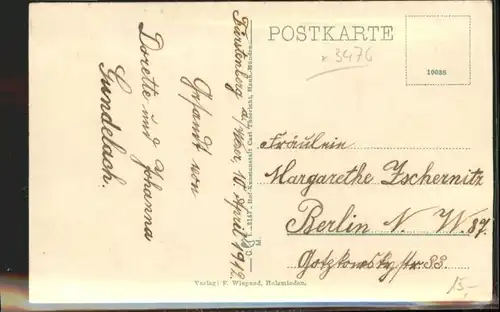 POSTKARTE
* 3476
10088
Fürstenberg a/Weser, 16. April 1912.
Gesandt von
Dorette und Johanna
Gundelach.
Fräulein
Margarethe Zschernitz
Berlin N. W. 87
Gotzkowsky str. 33.
Verlag: F. Wiegand, Holzminden.
15,-